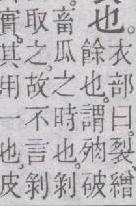 也衣部曰裂繒
餘也。謂破
畜瓜之時也。剝
取之。故不言剝
實。其用一也。皮